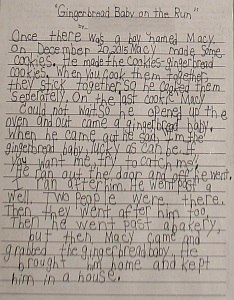 "Gingerbread Baby on the Run"
Once there was a boy named Macy
on December 20, 2015 Macy made some
cookies. He made the cookies-gingerbread
cookies. When you cook them together
they stick together, so he cooked them
seperately. On the last cookie Macy
could not wait. So he opened up the
oven and out came a gingerbread baby.
When he came out he said, "I'm the
gingerbread baby, lucky as can be. If
you want me, try to catch me."
He ran out the door and off he went.
I ran after him. He went past a
well. Two people were there.
Then they went after him too.
Then he went past a bakery,
but then Macy came and
grabbed the gingerbread baby. He
brought him home and kept
him in a house.